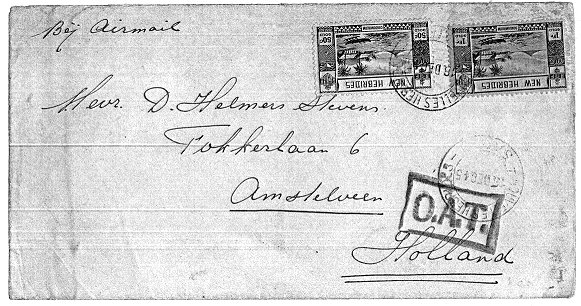 Bej Airmail
50c 50c
NEW HEBRIDES
NEW HEBRIDES
Mevr. D. Helmers Stevens.
Fokkerlaan 6
Amstelveen
O.A.T.
Holland